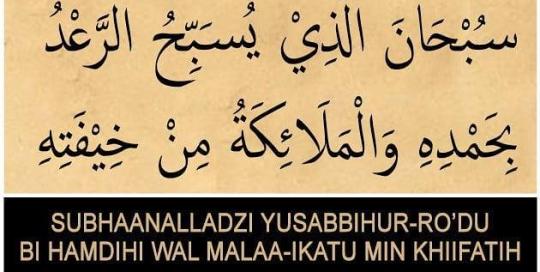 سُبْحَانَ الذِيْ يُسَبِّحُ الرَّعْدُ
بِحَمْدِهِ وَالْمَلَائِكَةُ مِنْ خِيْفَتِهِ
SUBHAANALLADZI YUSABBIHUR-RO'DU
BI HAMDIHI WAL MALAA-IKATU MIN KHIIFATIH